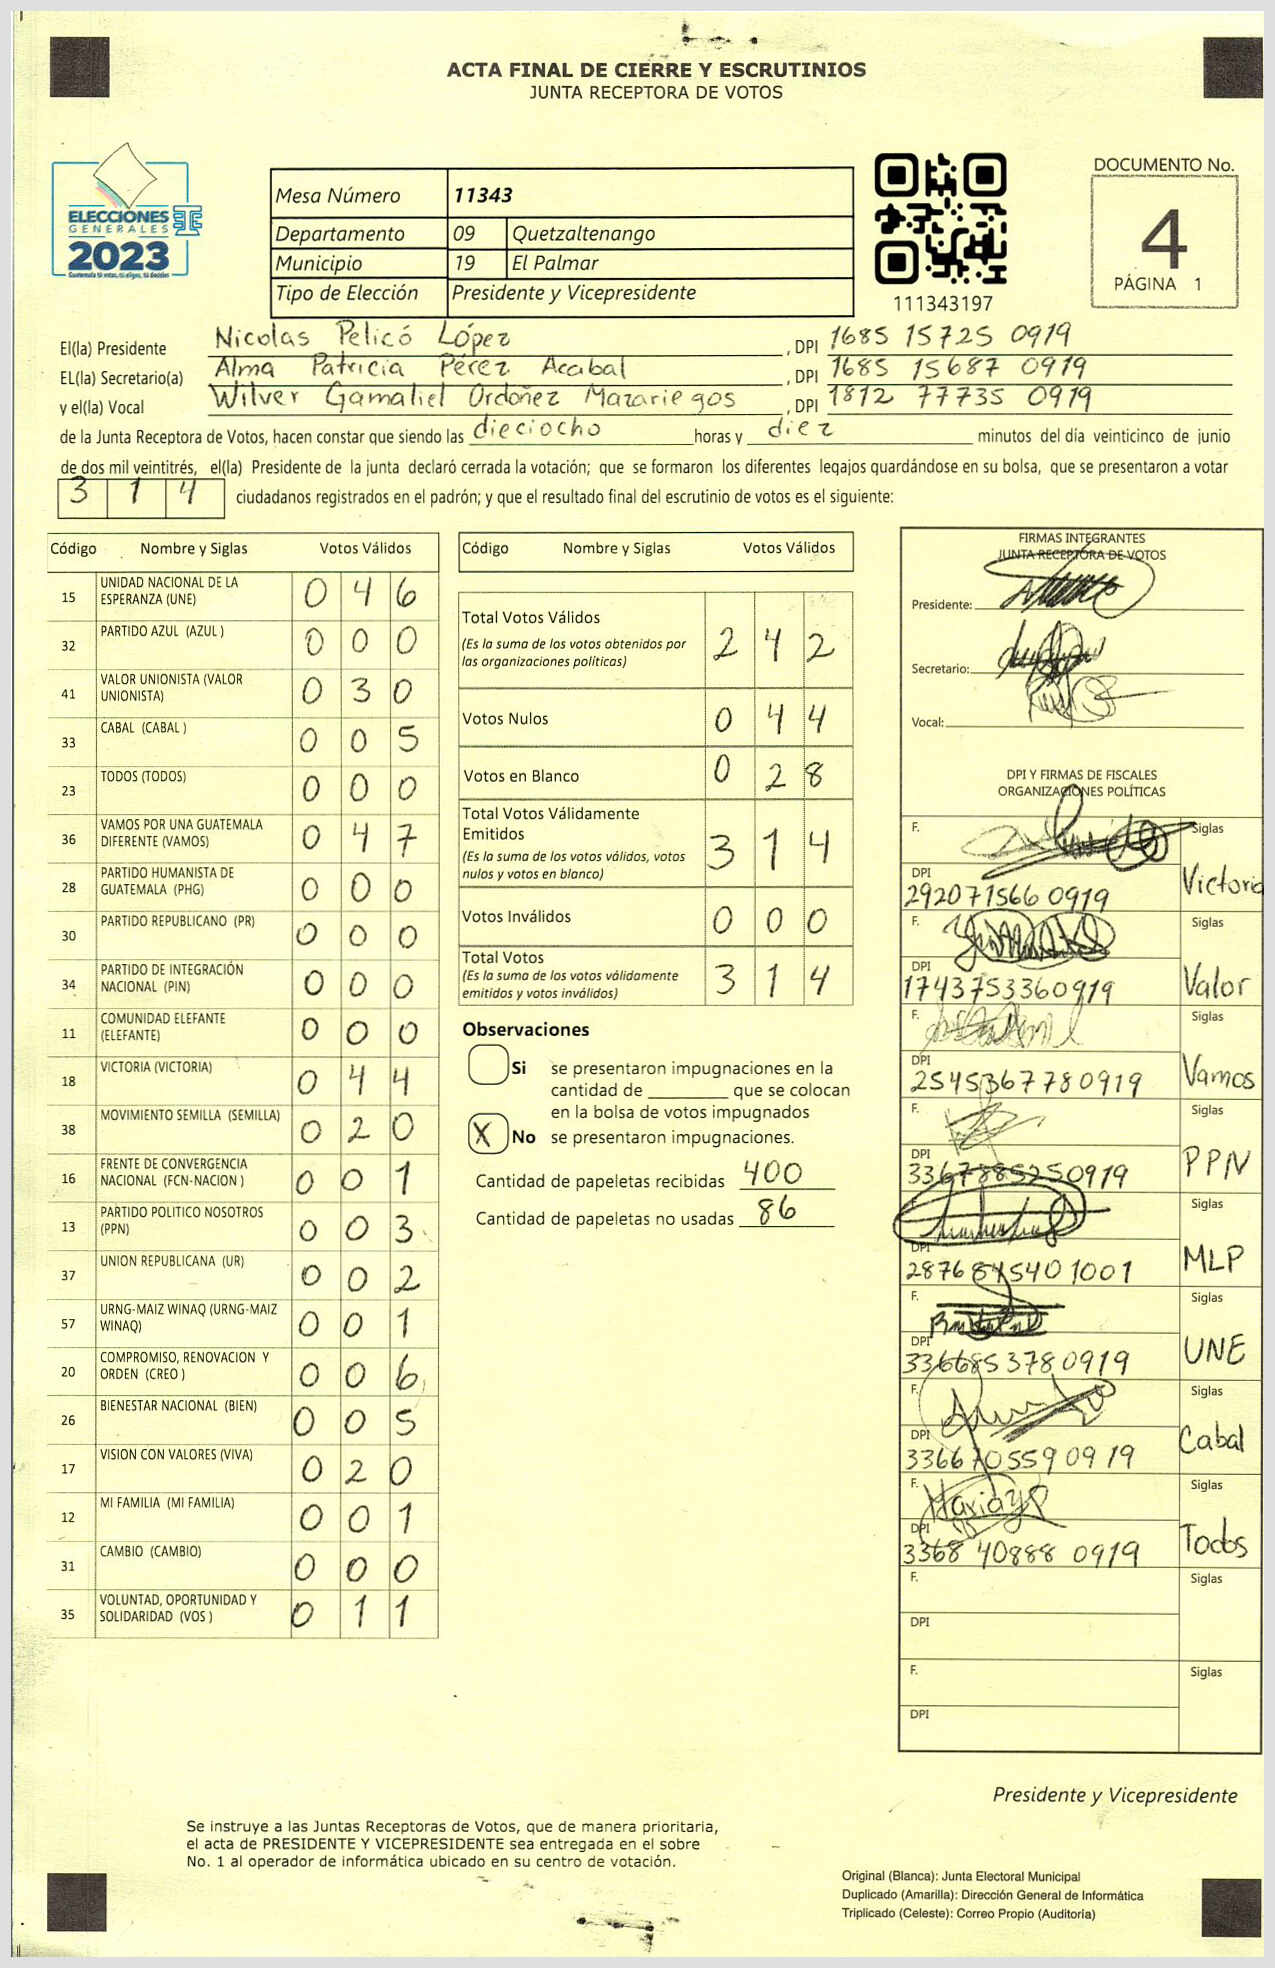 ACTA FINAL DE CIERRE Y ESCRUTINIOS
JUNTA RECEPTORA DE VOTOS
ELECCIONES
GENERALES
2023
Mesa Número 11343
Departamento 09 Quetzaltenango
Municipio 19 El Palmar
Tipo de Elección Presidente y Vicepresidente
111343197
DOCUMENTO No.
4
PÁGINA 1
El(la) Presidente Nicolas Pelicó López, DPI 1685 15725 0919
EL(la) Secretario(a) Alma Patricia Pérez Acabal, DPI 1685 15687 0919
y el(la) Vocal Wilver Gamaliel Ordoñez Mazariegos, DPI 1812 77735 0919
de la Junta Receptora de Votos, hacen constar que siendo las dieciocho horas y diez minutos del día veinticinco de junio
de dos mil veintitrés, el(la) Presidente de la junta declaró cerrada la votación; que se formaron los diferentes legajos guardándose en su bolsa, que se presentaron a votar
314 ciudadanos registrados en el padrón; y que el resultado final del escrutinio de votos es el siguiente:
Código Nombre y Siglas Votos Válidos
15 UNIDAD NACIONAL DE LA ESPERANZA (UNE) 046
32 PARTIDO AZUL (AZUL ) 000
41 VALOR UNIONISTA (VALOR UNIONISTA) 030
33 CABAL (CABAL ) 005
23 TODOS (TODOS) 000
36 VAMOS POR UNA GUATEMALA DIFERENTE (VAMOS) 047
28 PARTIDO HUMANISTA DE GUATEMALA (PHG) 000
30 PARTIDO REPUBLICANO (PR) 000
34 PARTIDO DE INTEGRACIÓN NACIONAL (PIN) 000
11 COMUNIDAD ELEFANTE (ELEFANTE) 000
18 VICTORIA (VICTORIA) 044
38 MOVIMIENTO SEMILLA (SEMILLA) 020
16 FRENTE DE CONVERGENCIA NACIONAL (FCN-NACION ) 001
13 PARTIDO POLITICO NOSOTROS (PPN) 003
37 UNION REPUBLICANA (UR) 002
57 URNG-MAIZ WINAQ (URNG-MAIZ WINAQ) 001
20 COMPROMISO, RENOVACION Y ORDEN (CREO ) 006
26 BIENESTAR NACIONAL (BIEN) 005
17 VISION CON VALORES (VIVA) 020
12 MI FAMILIA (MI FAMILIA) 001
31 CAMBIO (CAMBIO) 000
35 VOLUNTAD, OPORTUNIDAD Y SOLIDARIDAD (VOS ) 011
Código Nombre y Siglas Votos Válidos
Total Votos Válidos 242
(Es la suma de los votos obtenidos por
las organizaciones políticas)
Votos Nulos 044
Votos en Blanco 028
Total Votos Válidamente
Emitidos 314
(Es la suma de los votos válidos, votos
nulos y votos en blanco)
Votos Inválidos 000
Total Votos 314
(Es la suma de los votos válidamente
emitidos y votos inválidos)
Observaciones
Si se presentaron impugnaciones en la
cantidad de ________ que se colocan
en la bolsa de votos impugnados
X No se presentaron impugnaciones.
Cantidad de papeletas recibidas 400
Cantidad de papeletas no usadas 86
FIRMAS INTEGRANTES
JUNTA RECEPTORA DE VOTOS
Presidente:
Secretario:
Vocal:
DPI Y FIRMAS DE FISCALES
ORGANIZACIONES POLÍTICAS
F. Siglas
DPI 292071566 0919 Victoria
F. Siglas
DPI 1743753360919 Valor
F. Siglas
DPI 2545367780919 Vamos
F. Siglas
DPI 3367885250919 PPN
F. Siglas
DPI 287684540 1001 MLP
F. Siglas
DPI 3366853780919 UNE
F. Siglas
DPI 336670559 0919 Cabal
F. Siglas
DPI 3368 40888 0919 Todos
F. Siglas
DPI
F. Siglas
DPI
Presidente y Vicepresidente
Se instruye a las Juntas Receptoras de Votos, que de manera prioritaria,
el acta de PRESIDENTE Y VICEPRESIDENTE sea entregada en el sobre
No. 1 al operador de informática ubicado en su centro de votación.
Original (Blanca): Junta Electoral Municipal
Duplicado (Amarilla): Dirección General de Informática
Triplicado (Celeste): Correo Propio (Auditoría)